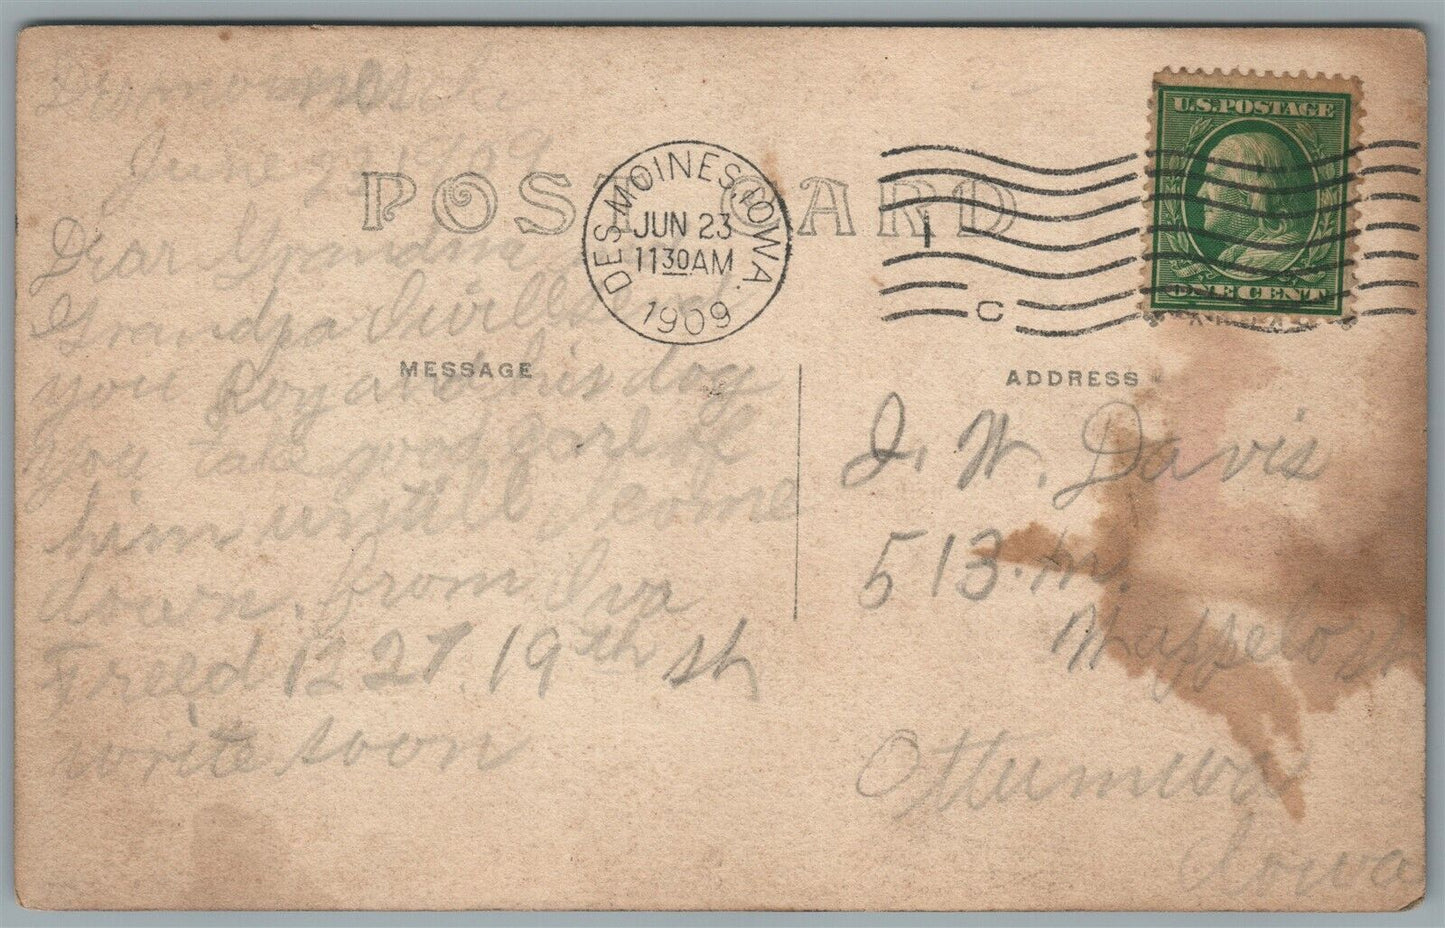 June 23, 1909
POST CARD
DES MOINES, IOWA.
JUN 23
11 30 AM
1909
1
C
U.S. POSTAGE
ONE CENT
Dear Grandma
Grandpa I will send
you Roy and his dog
you take good care of
him untill I come
down. from Iva
Freed 1227 19th st
write soon
MESSAGE
ADDRESS
J. W. Davis
513. N.
Wappelo st
Ottumwa
Iowa